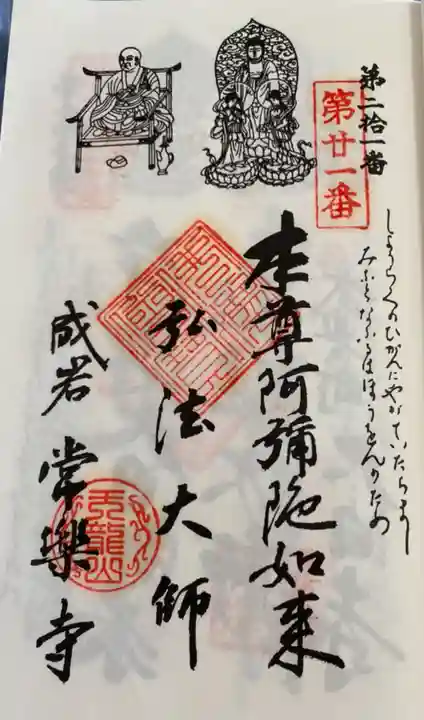 第二拾一番
第廿一番
しようらくのひがんにやがていたらまし
みなとなふるはほうをんのため
本尊阿彌陀如来
弘法大師
成岩 常樂寺
天龍山